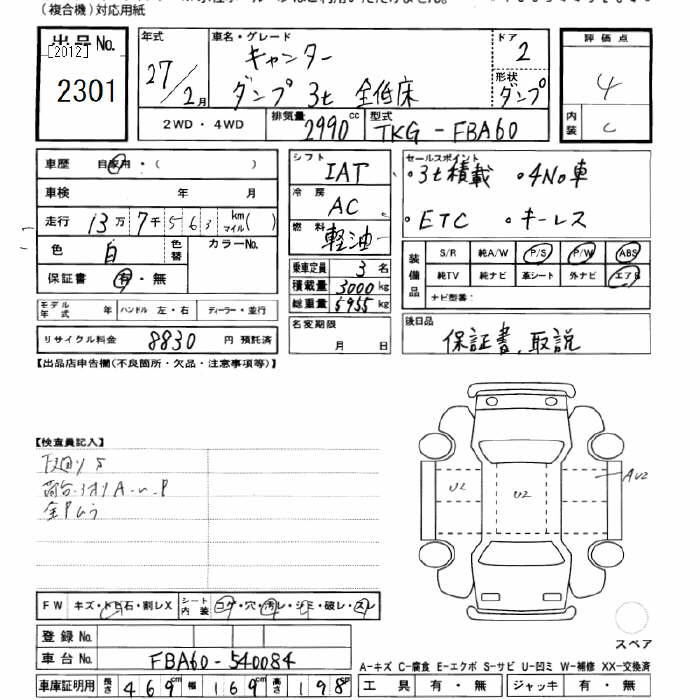 (複合機)対応用紙
出品No.
[2012]
2301
年式
27/2月
車名・グレード
キャンター
ダンプ 3t 全低床
ドア
2
形状
ダンプ
評価点
4
内装
C
2WD・4WD
排気量
2990cc
型式
TKG-FBA60
車歴 自家用・( )
車検 年 月
走行 13万7千563 km マイル( )
色 白 色替 カラーNo.
保証書 有・無
モデル年式 年 ハンドル 左・右 ディーラー・並行
リサイクル料金 8830 円 預託済
シフト
IAT
冷房
AC
燃料
軽油
乗車定員 3名
積載量 3000kg
総重量 5955kg
名変期限
月 日
セールスポイント
・3t積載 ・4No車
・ETC ・キーレス
装備品
S/R 純A/W P/S P/W ABS
純TV 純ナビ 革シート 外ナビ エアB
ナビ型番:
後日品
保証書、取説
【出品店申告欄(不良箇所・欠品・注意事項等)】
【検査員記入】
下回りS
U2
U2
AU2
スペア
FW キズ・トビ石・割レX シート内装 コゲ・穴・汚レ・シミ・破レ・スレ
登録No.
車台No. FBA60-540084
車庫証明用 長さ 469cm 幅 169cm 高さ 198
A-キズ C-腐食 E-エクボ S-サビ U-凹ミ W-補修 XX-交換済
工具 有・無 ジャッキ 有・無